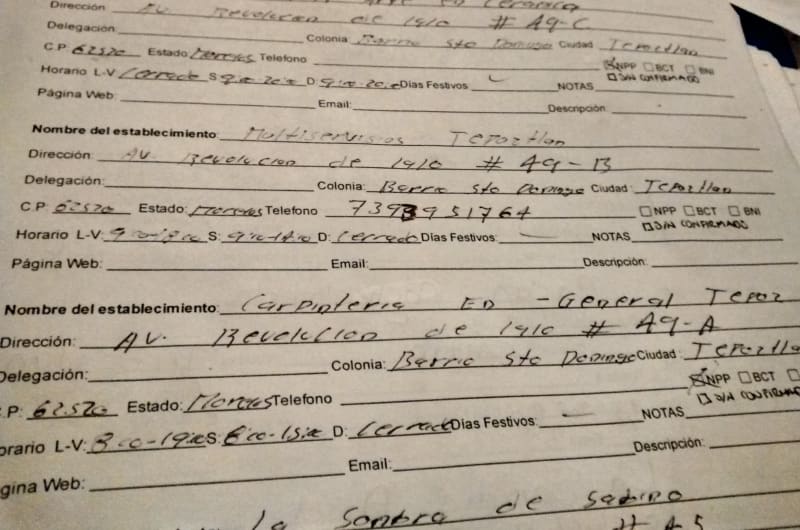 Dirección AV. Revolucion de 1910 # 49-C
Delegación: Colonia Barrio Sto Domingo Ciudad Tepoztlan
C.P. 62520 Estado Morelos Telefono NPP BCT BNI
Horario L-V Cerrado S 9:00-20:00 D 9:00-20:00 Días Festivos NOTAS S/N CONFIRMADO
Página Web: Email: Descripción:
Nombre del establecimiento: Multiservisios Tepoztlan
Dirección: AV. Revolucion de 1910 # 49-B
Delegación: Colonia: Barrio Sto Domingo Ciudad: Tepoztlan
C.P 62520 Estado: Morelos Telefono 7393951764 NPP BCT BNI
Horario L-V: S: D: Cerrado Días Festivos: NOTAS S/N CONFIRMADO
Página Web: Email: Descripción:
Nombre del establecimiento: Carpinteria En - General Tepoz
Dirección: AV. Revolucion de 1910 # 49-A
Delegación: Colonia: Barrio Sto Domingo Ciudad: Tepoztla
.P: 62520 Estado: Morelos Telefono NPP BCT
orario L-V: S: D: Cerrado Días Festivos: NOTAS S/N CONFIRMAD
gina Web: Email: Descripción:
la Sombra de Sabino
# 45